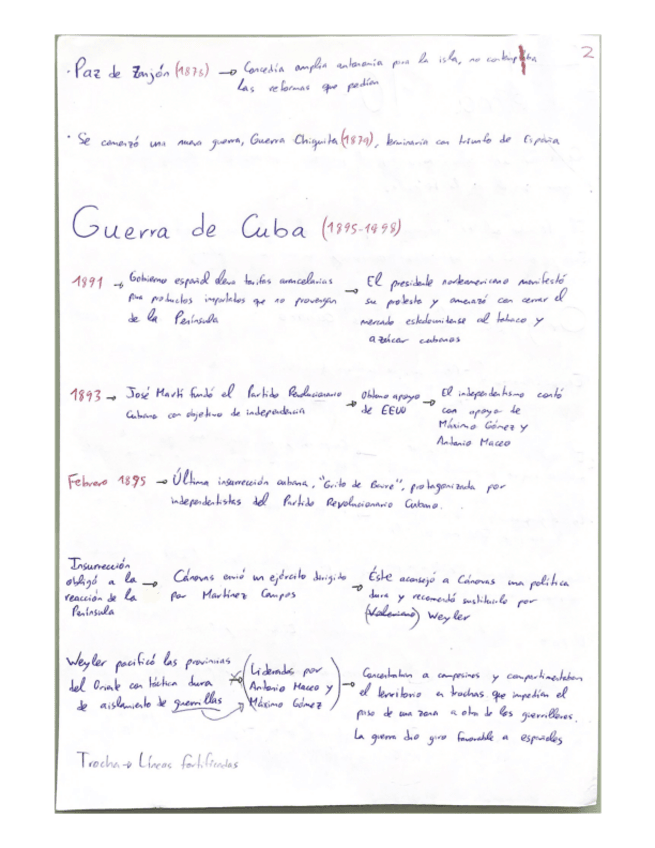 2
· Paz de Zanjón (1878) → Concedía amplia autonomía para la isla, no contemplaba
las reformas que pedían
· Se comenzó una nueva guerra, Guerra Chiquita (1879), terminaría con triunfo de España
Guerra de Cuba (1895-1898)
1891 → Gobierno español eleva tarifas arancelarias
para productos importados que no provengan
de la Península
→ El presidente norteamericano manifestó
su protesta y amenazó con cerrar el
mercado estadounidense al tabaco y
azúcar cubanos
1893 → José Martí fundó el Partido Revolucionario
Cubano con objetivo de independencia
→ Obtuvo apoyo
de EEUU
→ El independentismo contó
con apoyo de
Máximo Gómez y
Antonio Maceo
Febrero 1895 → Última insurrección cubana, "Grito de Baire", protagonizada por
independentistas del Partido Revolucionario Cubano.
Insurrección
obligó a la
reacción de la
Península
→ Cánovas envió un ejército dirigido
por Martínez Campos
→ Éste aconsejó a Cánovas una política
dura y recomendó sustituirlo por
(Valeriano) Weyler
Weyler pacificó las provincias
del Oriente con táctica dura
de aislamiento de guerrillas
→ (Liderados por
Antonio Maceo y
Máximo Gómez)
→ Concentraban a campesinos y compartimentaban
el territorio en trochas que impedían el
paso de una zona a otra de los guerrilleros.
La guerra dio giro favorable a españoles
Trocha → Líneas fortificadas